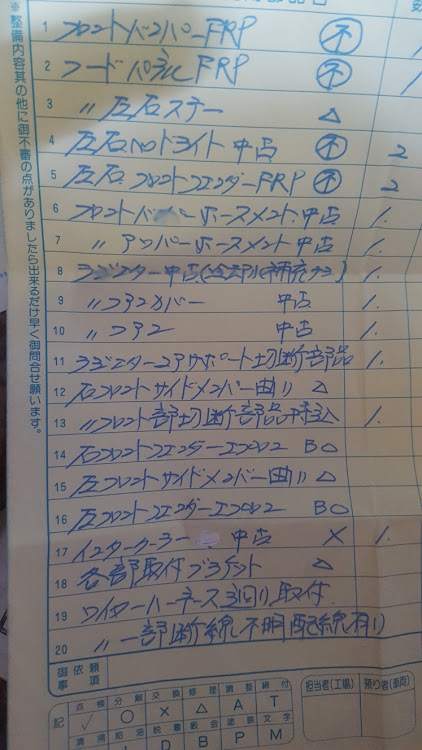 1 フロントバンパーFRP 不 1
2 フードパネルFRP 不 1
3 〃 左右ステー △
4 左右ヘッドライト 中古 不 2
5 左右フロントフェンダーFRP 不 2
6 フロントバンパーホースメント 中古 1.
7 〃 アッパーホースメント 中古 1.
8 ラジエター中古 1.
9 〃ファンカバー 中古 1.
10 〃ファン 中古 1.
11 ラジエターコアサポート切断部品 1.
12 右フロントサイドメンバー曲り △
13 〃フロント部切断部品 1.
14 右フロントフェンダーエプロン B○
15 左フロントサイドメンバー曲り △
16 左フロントフェンダーエプロン B○
17 インタークーラー 中古 × 1.
18 各部取付ブラケット △
19 ワイヤーハーネス 取付
20 〃 一部断線 不明配線有り
御依頼事項
記
点検 分解 交換 修理 調整 締付
✓ ○ × △ A T
清掃 給油 脱着 板金 塗装 文字
L D B P M
担当者(工場) 預り者(車両)
※整備内容其の他に御不審の点がありましたら出来るだけ早く御問合せ願います。